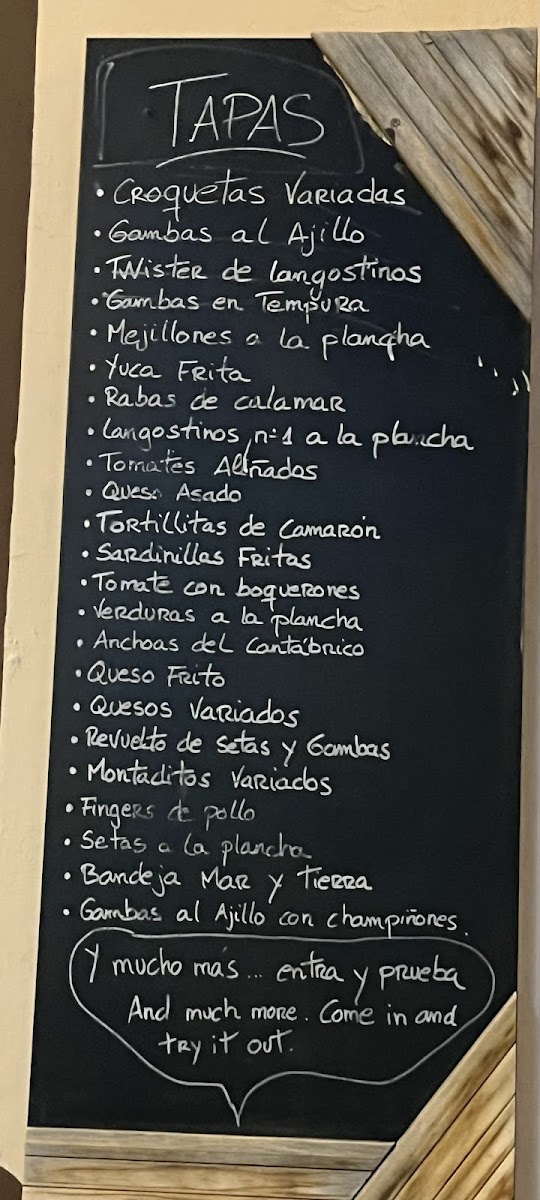 TAPAS
• CROQUETAS VARIADAS
• Gambas al Ajillo
• TWISTER de langostinos
• Gambas en TEMPURA
• Mejillones a la plancha
• Yuca FRITA
• Rabas de calamar
• Langostinos nº1 a la plancha
• Tomates Aliñados
• Queso Asado
• TORTILLITAS de CAMARÓN
• SARDINILLAS FRITAS
• Tomate con boquerones
• VERDURAS a la plancha
• Anchoas del Cantábrico
• Queso FRITO
• Quesos VARIADOS
• Revuelto de setas y Gambas
• Montaditos VARIADOS
• Fingers de pollo
• Setas a la plancha
• Bandeja MAR y TIERRA
• Gambas al Ajillo con champiñones.
Y mucho más... entra y prueba
And much more. Come in and
try it out.